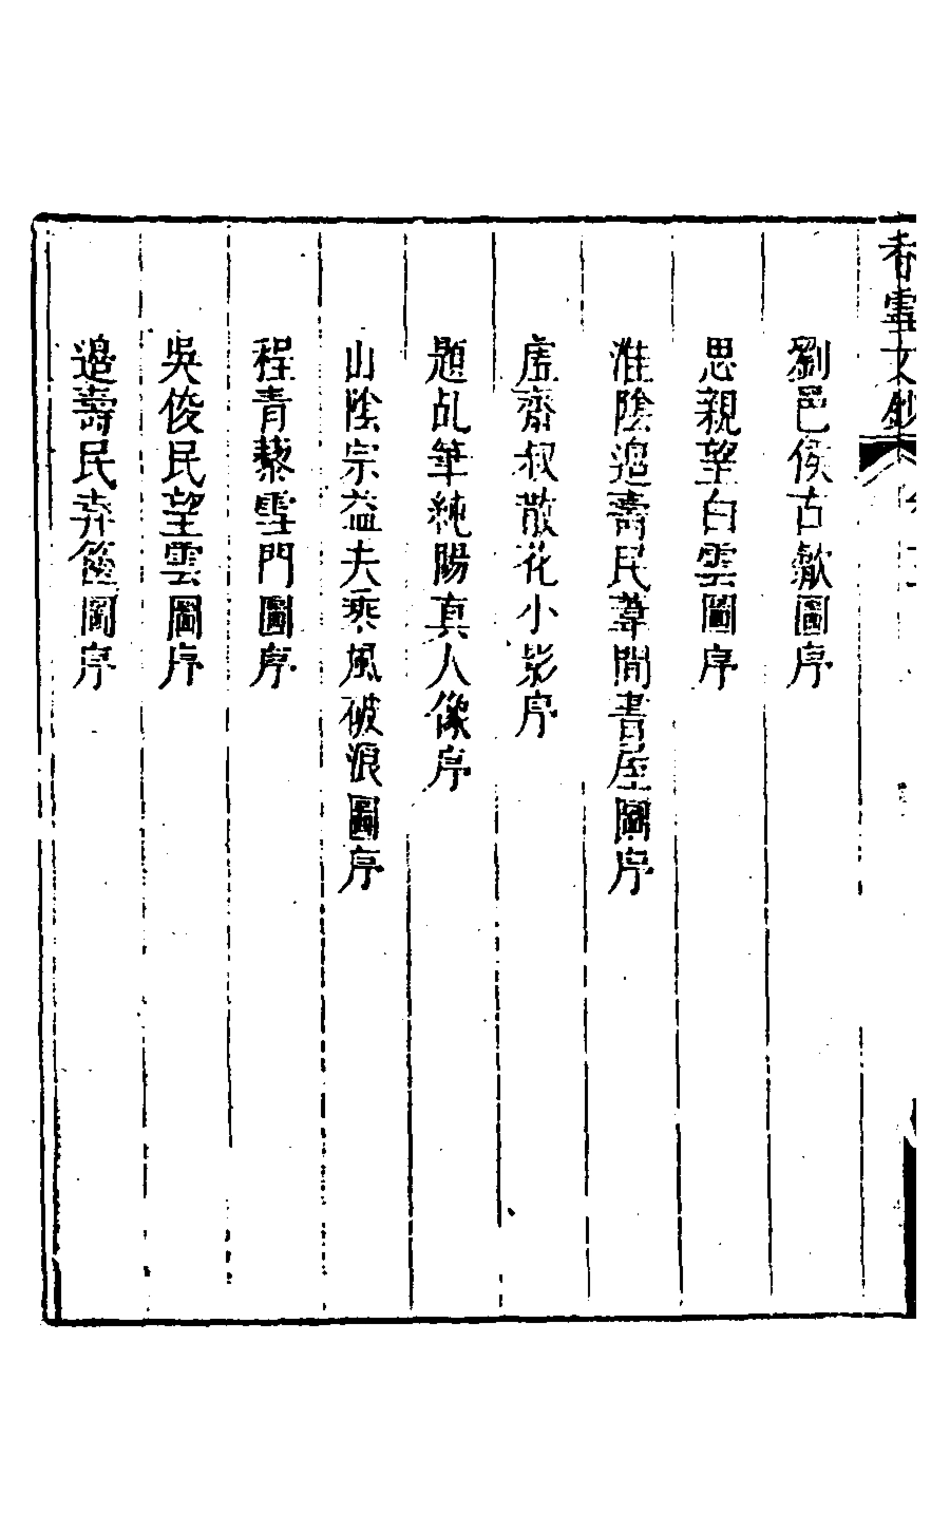 香雪文鈔
劉邑侯古歡圖序
思親望白雲圖序
淮陰邉壽民葦間書屋圖序
虛齋叔散花小影序
題乩筆純陽真人像序
山陰宗益夫乘風破浪圖序
程青藜雪門圖序
吳俊民望雲圖序
邉壽民弆篋圖序